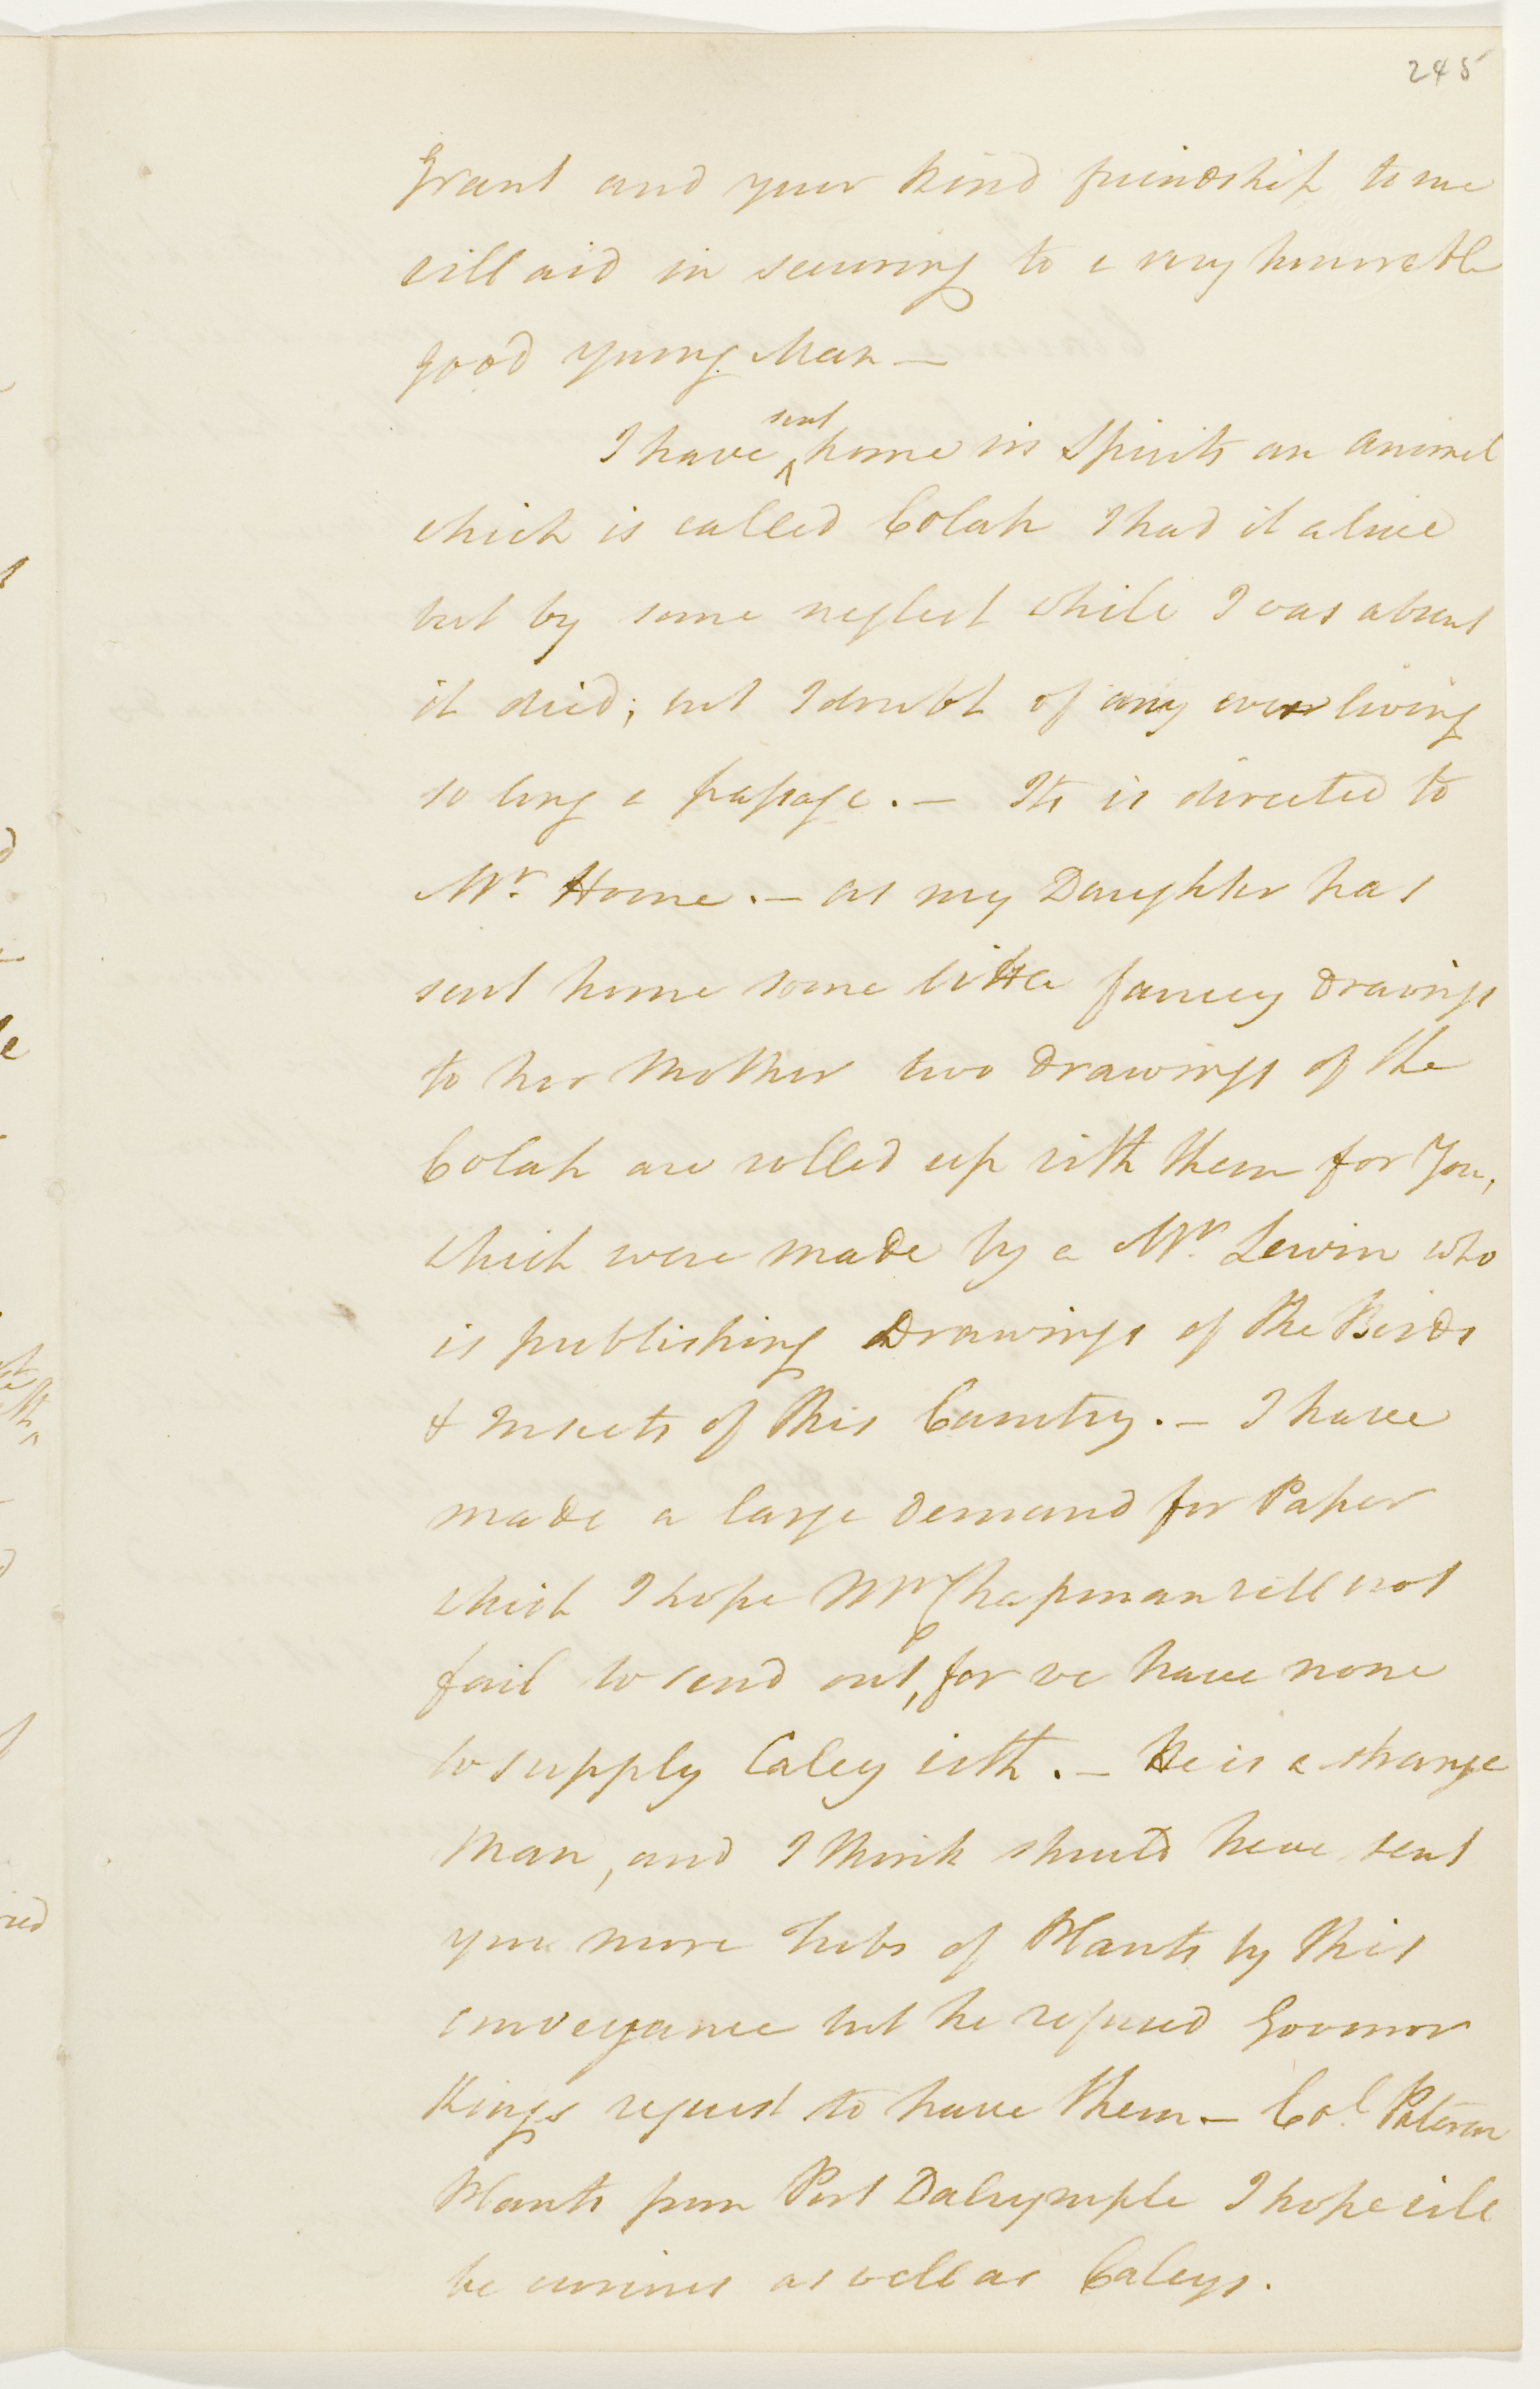 245
Grant and your kind friendship to me
will aid in securing to a very honorable
good young Man —
sent
I have ^ home in Spirits an animal
which is called Colah I had it alive
but by some neglect while I was absent
it died; but I doubt of any ever living
so long a passage. — Its is directed to
Mr. Home. — as my Daughter has
sent home some little fancey drawings
to her Mother two drawings of the
Colah are rolled up with them for You,
which were made by a Mr. Lewin who
is publishing Drawings of the Birds
& Insects of this Country. — I have
made a large demand for Paper
which I hope Mr Chapman will not
fail to send out, for we have none
to supply Caley with. — He is a strange
Man, and I think should have sent
you more Tubs of Plants by this
conveyance but he refused Governor
Kings request to have them — Col. Paterson
Plants from Port Dalrymple I hope will
be curious as well as Caleys.